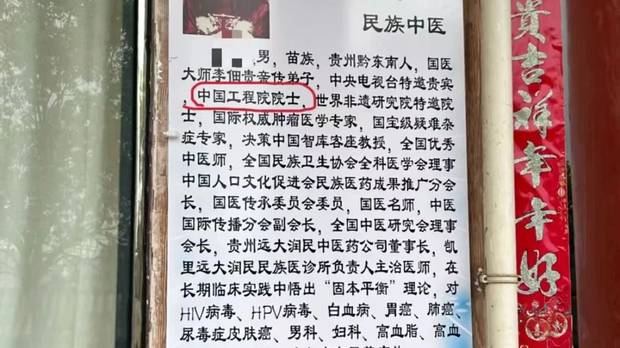 民族中医
男，苗族，贵州黔东南人，国医
大师李佃贵亲传弟子，中央电视台特邀贵宾
，中国工程院院士，世界非遗研究院特邀院
士，国际权威肿瘤医学专家，国宝级疑难杂
症专家，决策中国智库客座教授，全国优秀
中医师，全国民族卫生协会全科医学会理事
中国人口文化促进会民族医药成果推广分会
长，国医传承委员会委员，国医名师，中医
国际传播分会副会长，全国中医研究会理事
会长，贵州远大润民中医药公司董事长，凯
里远大润民民族医诊所负责人主治医师，在
长期临床实践中悟出“固本平衡”理论，对
HIV病毒、HPV病毒、白血病、胃癌、肺癌、
尿毒症皮肤癌、男科、妇科、高血脂、高血
貴吉祥年年好